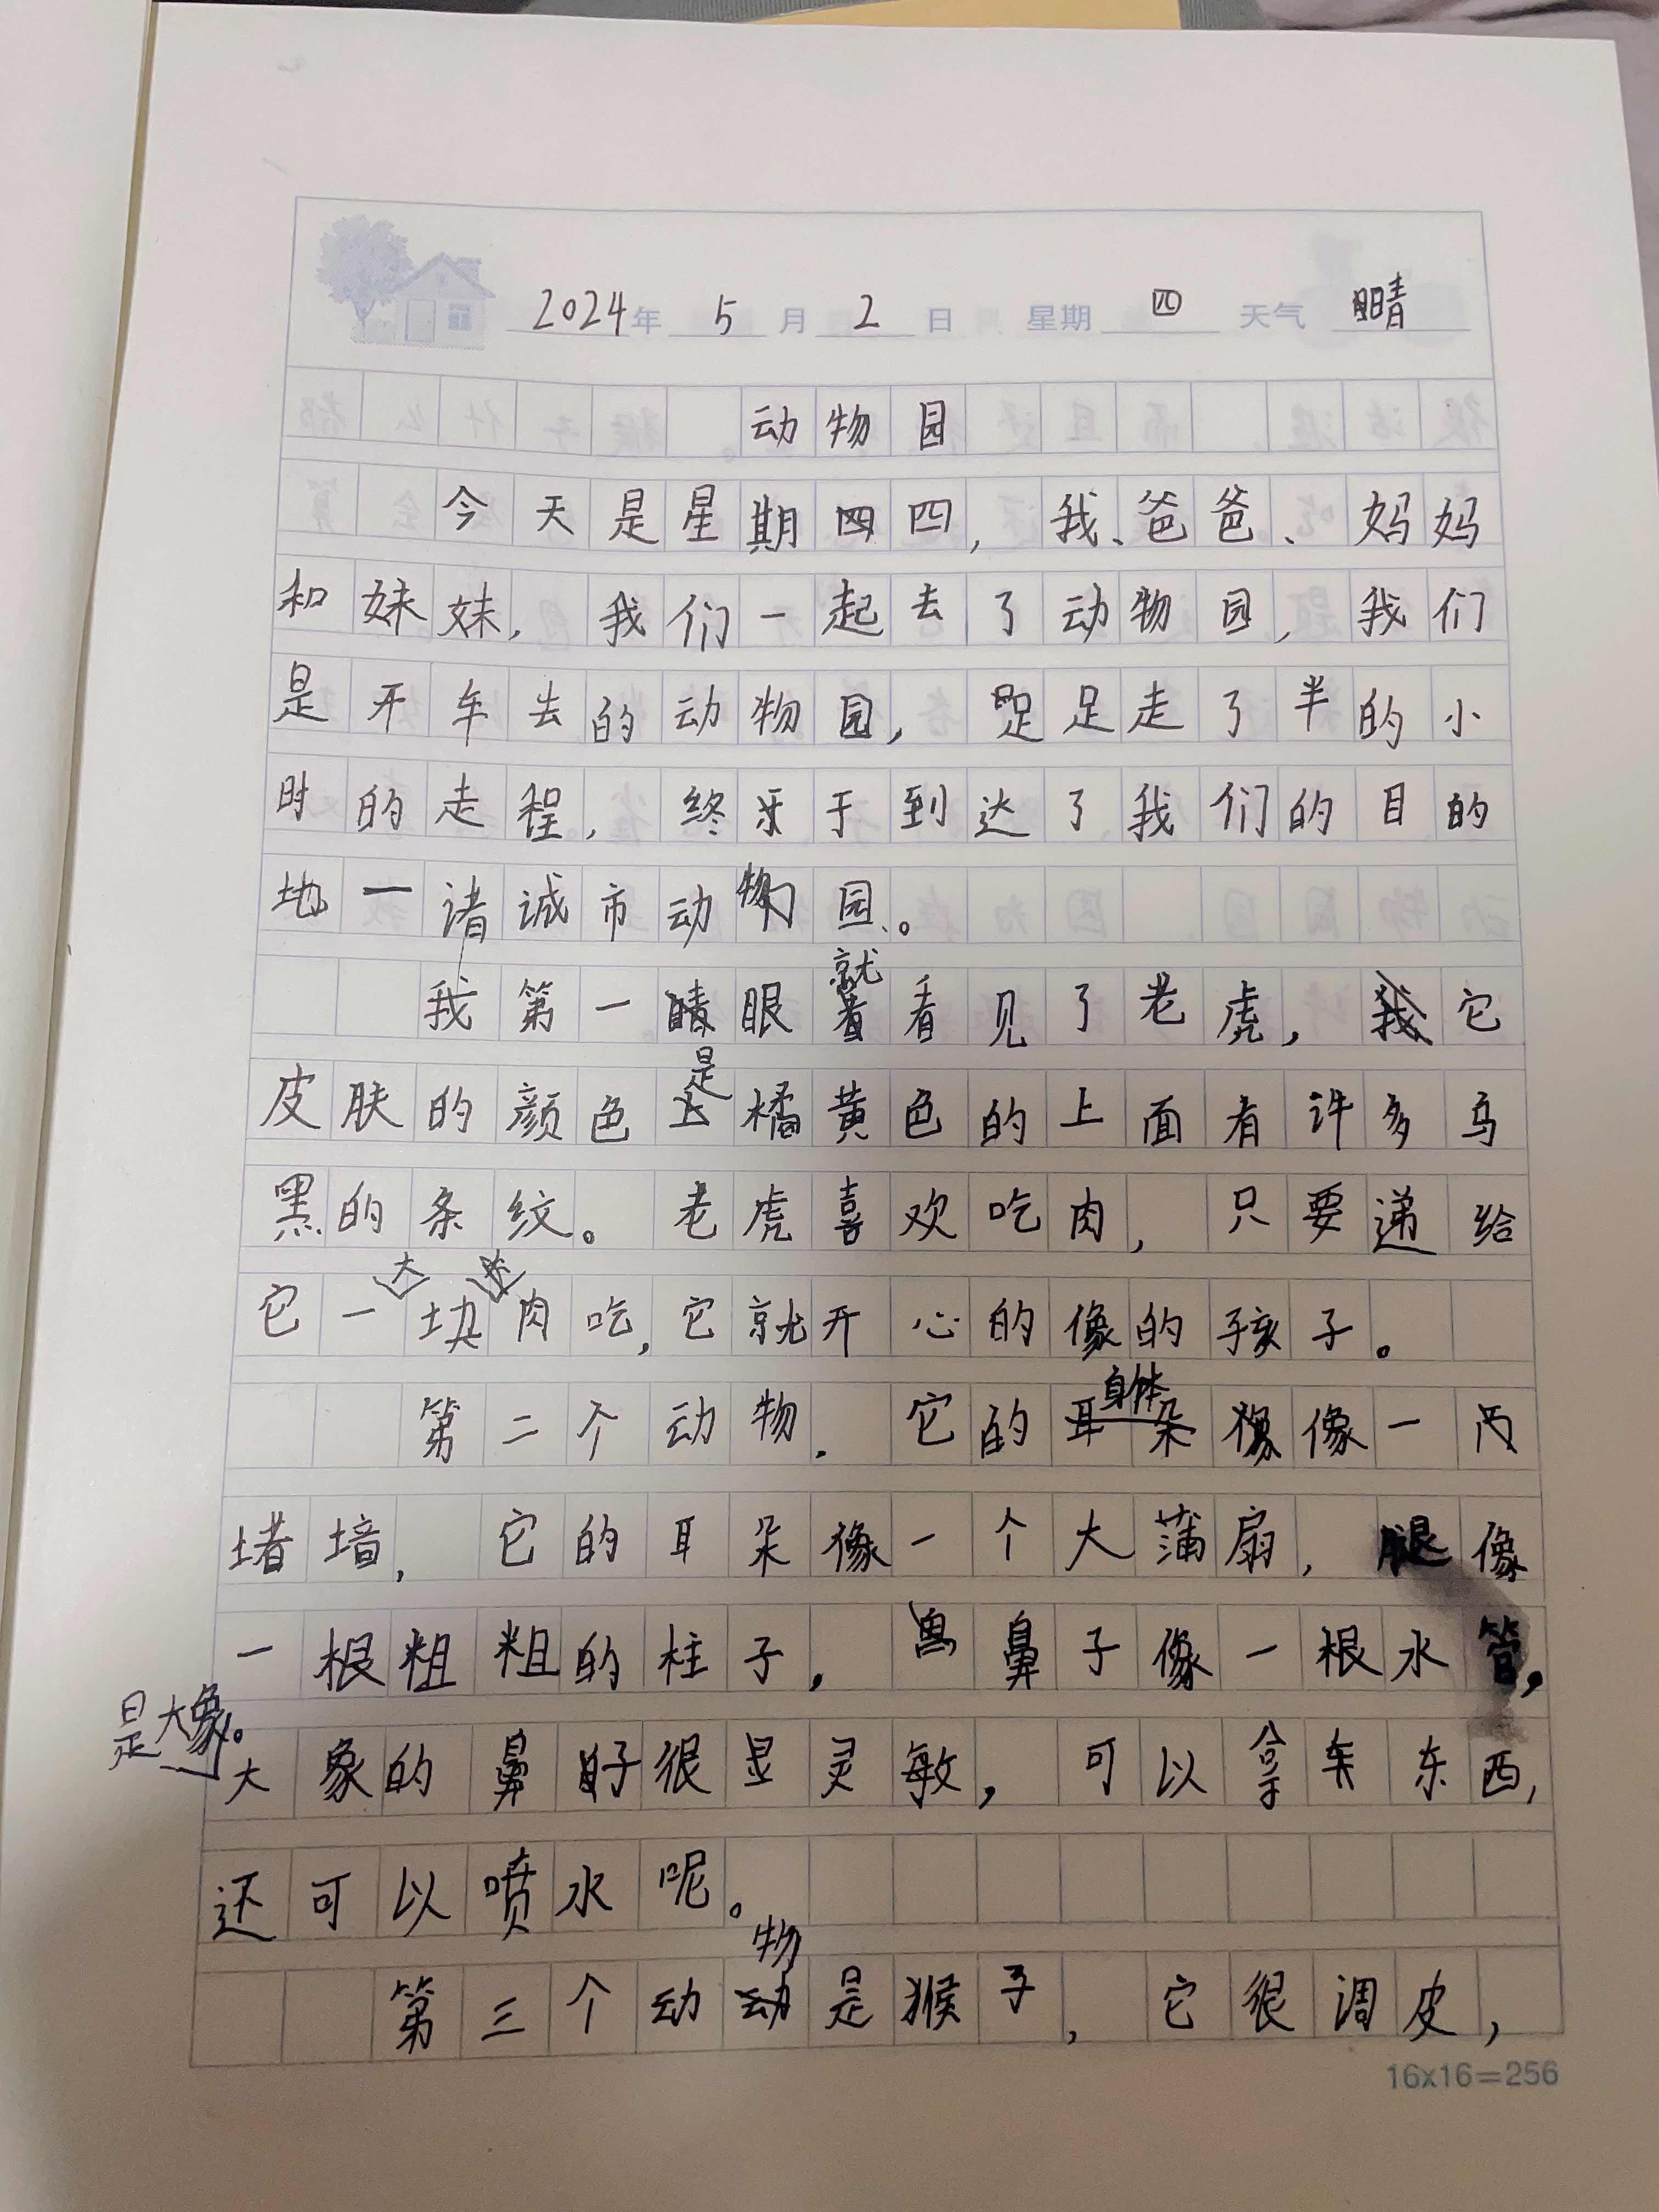 2024年 5月 2日 星期 四 天气 晴
动物园
今天是星期四,我、爸爸、妈妈
和妹妹,我们一起去了动物园,我们
是开车去的动物园,足足走了半的小
时的走程,终于到达了我们的目的
地一诸诚市动物园。
我第一眼就看见了老虎,它
皮肤的颜色是橘黄色的上面有许多乌
黑的条纹。老虎喜欢吃肉,只要递给
它一大块肉吃,它就开心的像的孩子。
第二个动物.它的身体像一
堵墙,它的耳朵像一个大蒲扇,腿像
一根粗粗的柱子,鼻子像一根水管,
是大象。
大象的鼻子很灵敏,可以拿东西,
还可以喷水呢。
第三个动物是猴子,它很调皮,
16x16=256